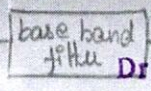 base band
filter
Dr